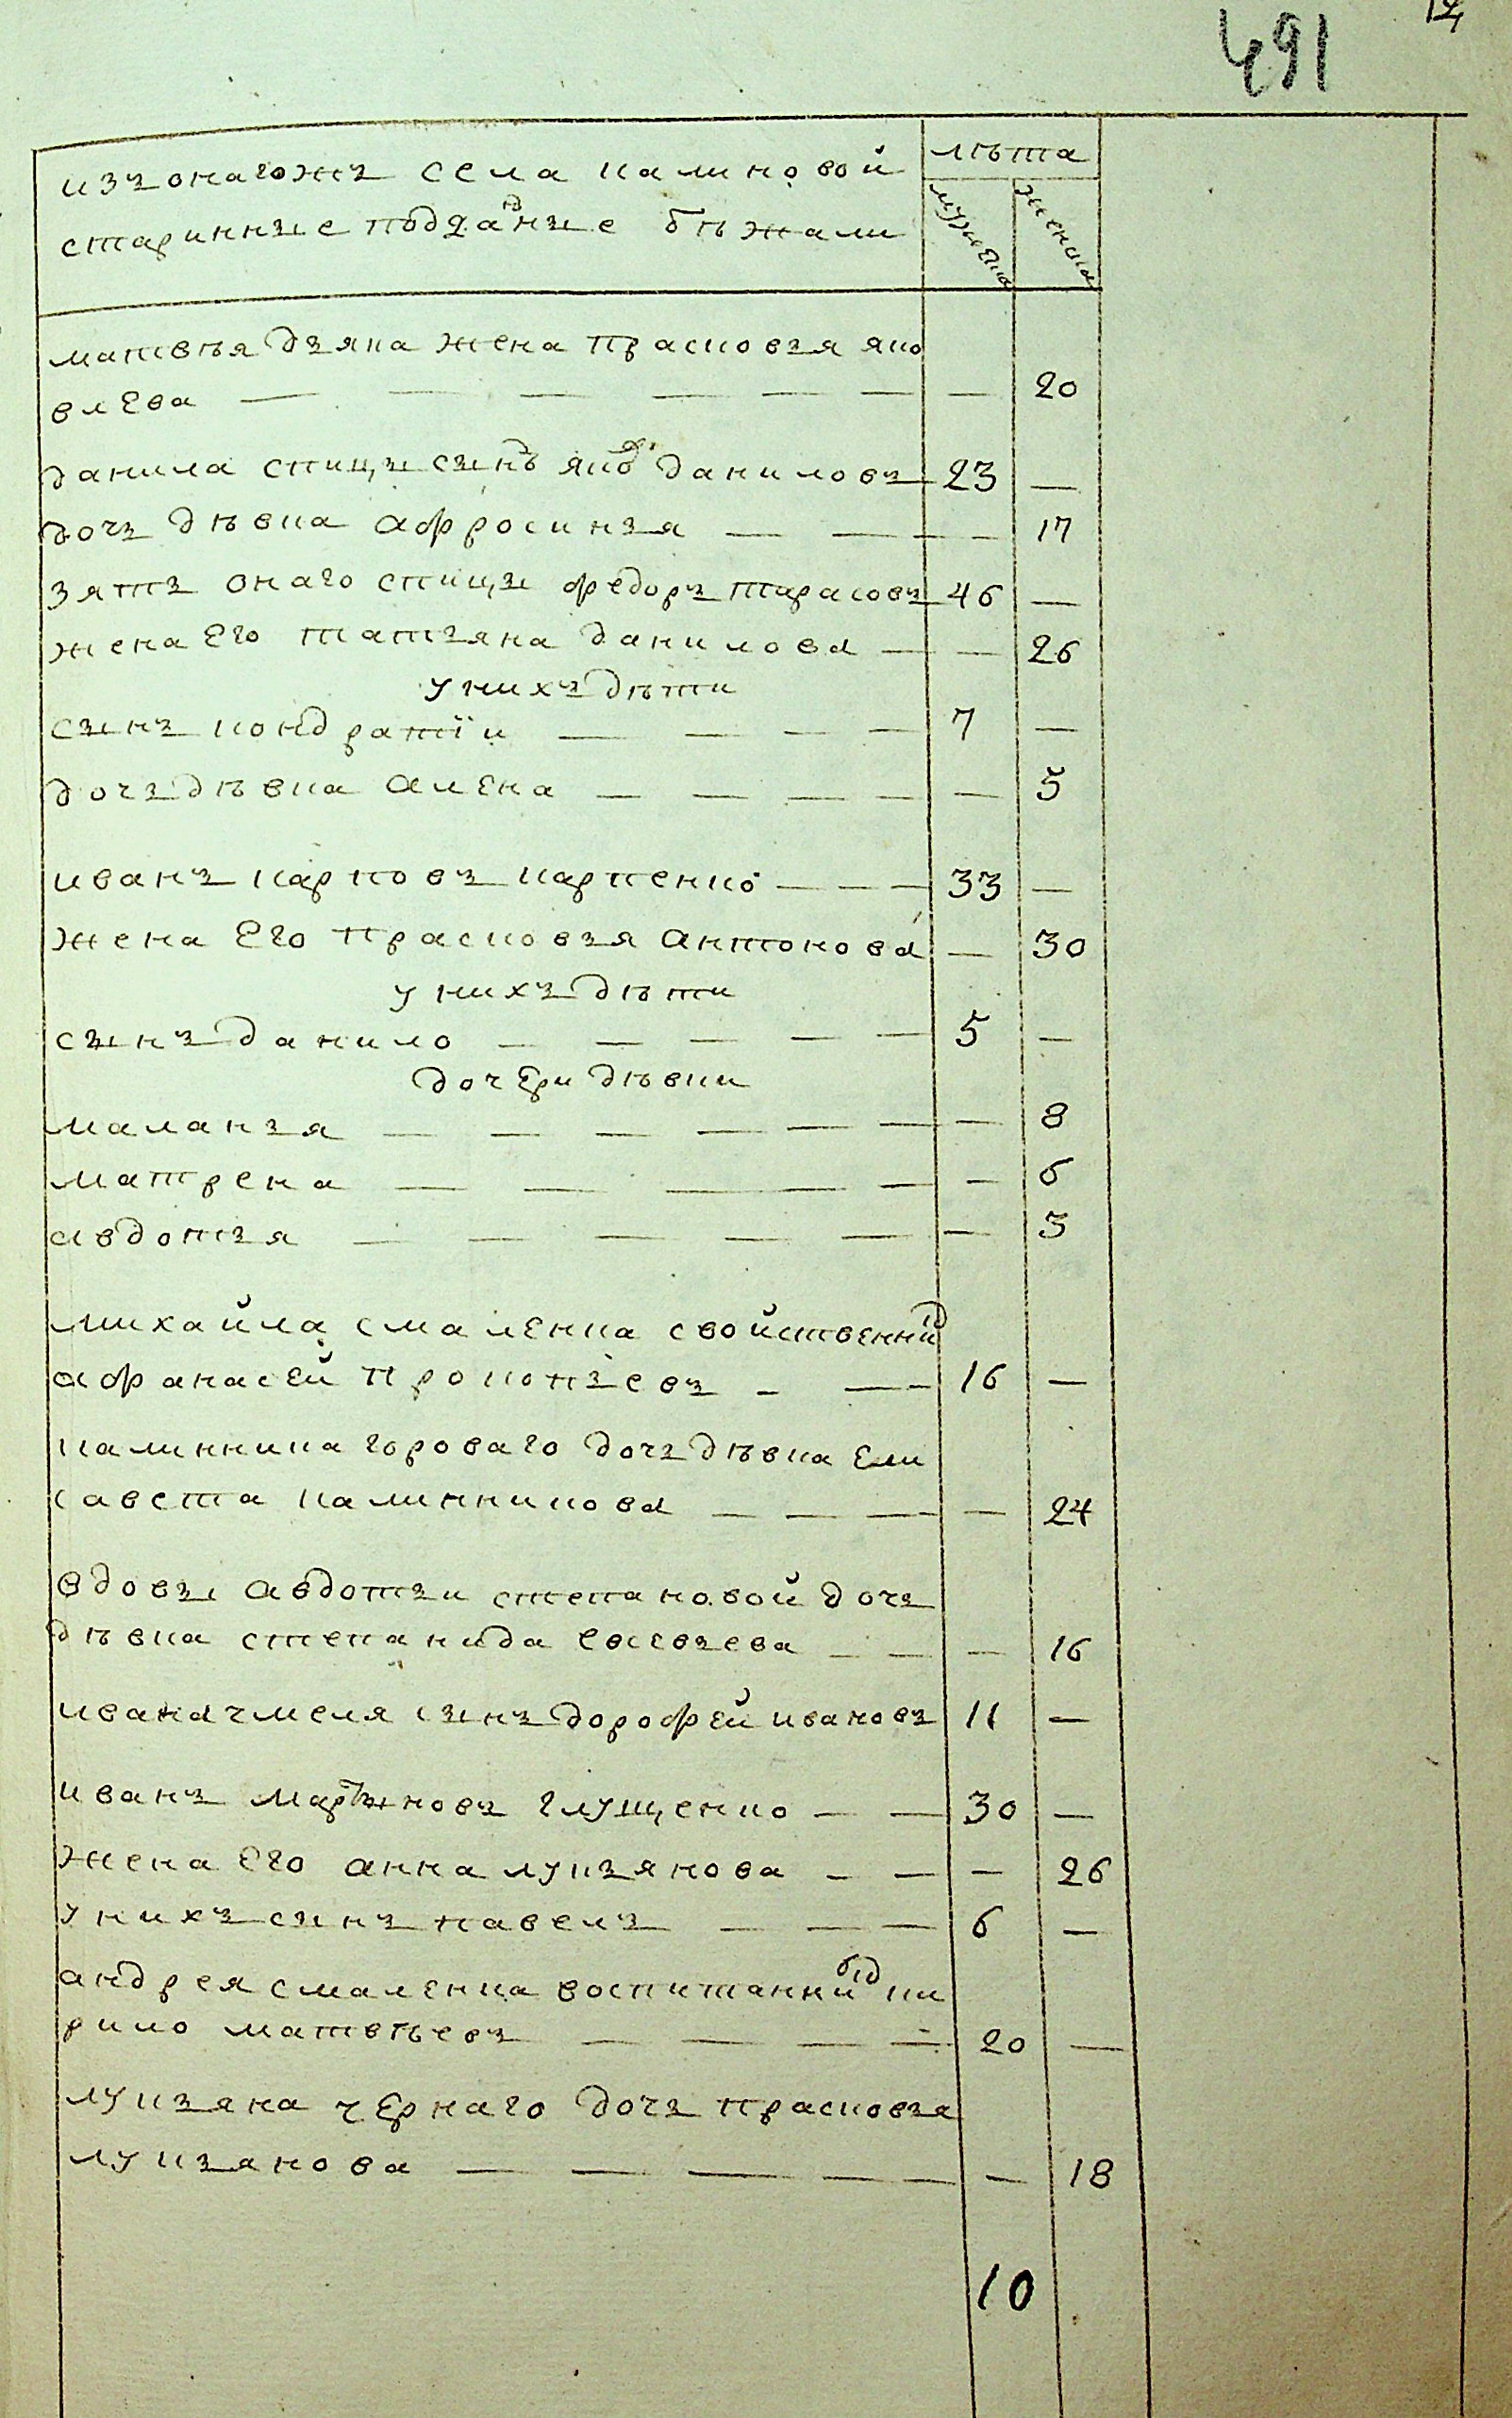 491
изъ онагожъ села калиновой
старинные подданные бѣжали
лѣта
мужеска
женска
матвѣя дьяка жена прасковья яко
влева — — — — — — — 20
данила спицы сынъ яковъ даниловъ 23 —
дочь дѣвка афросинья — — — 17
зять онаго спицы федоръ тарасовъ 46 —
жена его татьяна данилова — — 26
у нихъ дѣти
сынъ кондратїи — — — — 7 —
дочь дѣвка алена — — — — — 5
иванъ карповъ карпенко — — — 33 —
жена его прасковья антонова — 30
у нихъ дѣти
сынъ данило — — — — — 5 —
дочери дѣвки
маланья — — — — — — — 8
матрена — — — — — — 6
авдотья — — — — — — 3
михайла смаленка свойственникъ
афанасей прокопьевъ — — 16 —
калинника гороваго дочь дѣвка ели
савета калинникова — — — — 24
вдовы авдотьи степановой дочь
дѣвка степанида евсевьева — — — 16
ивана чмеля сынъ дорофей ивановъ 11 —
иванъ мартыновъ глущенко — — 30 —
жена его анна лукьянова — — — 26
у нихъ сынъ павелъ — — — 6 —
андрея смаленка воспитанникъ ки
рило матвѣевъ — — — — 20 —
лукьяна чернаго дочь прасковья
лукьянова — — — — — — 18
10